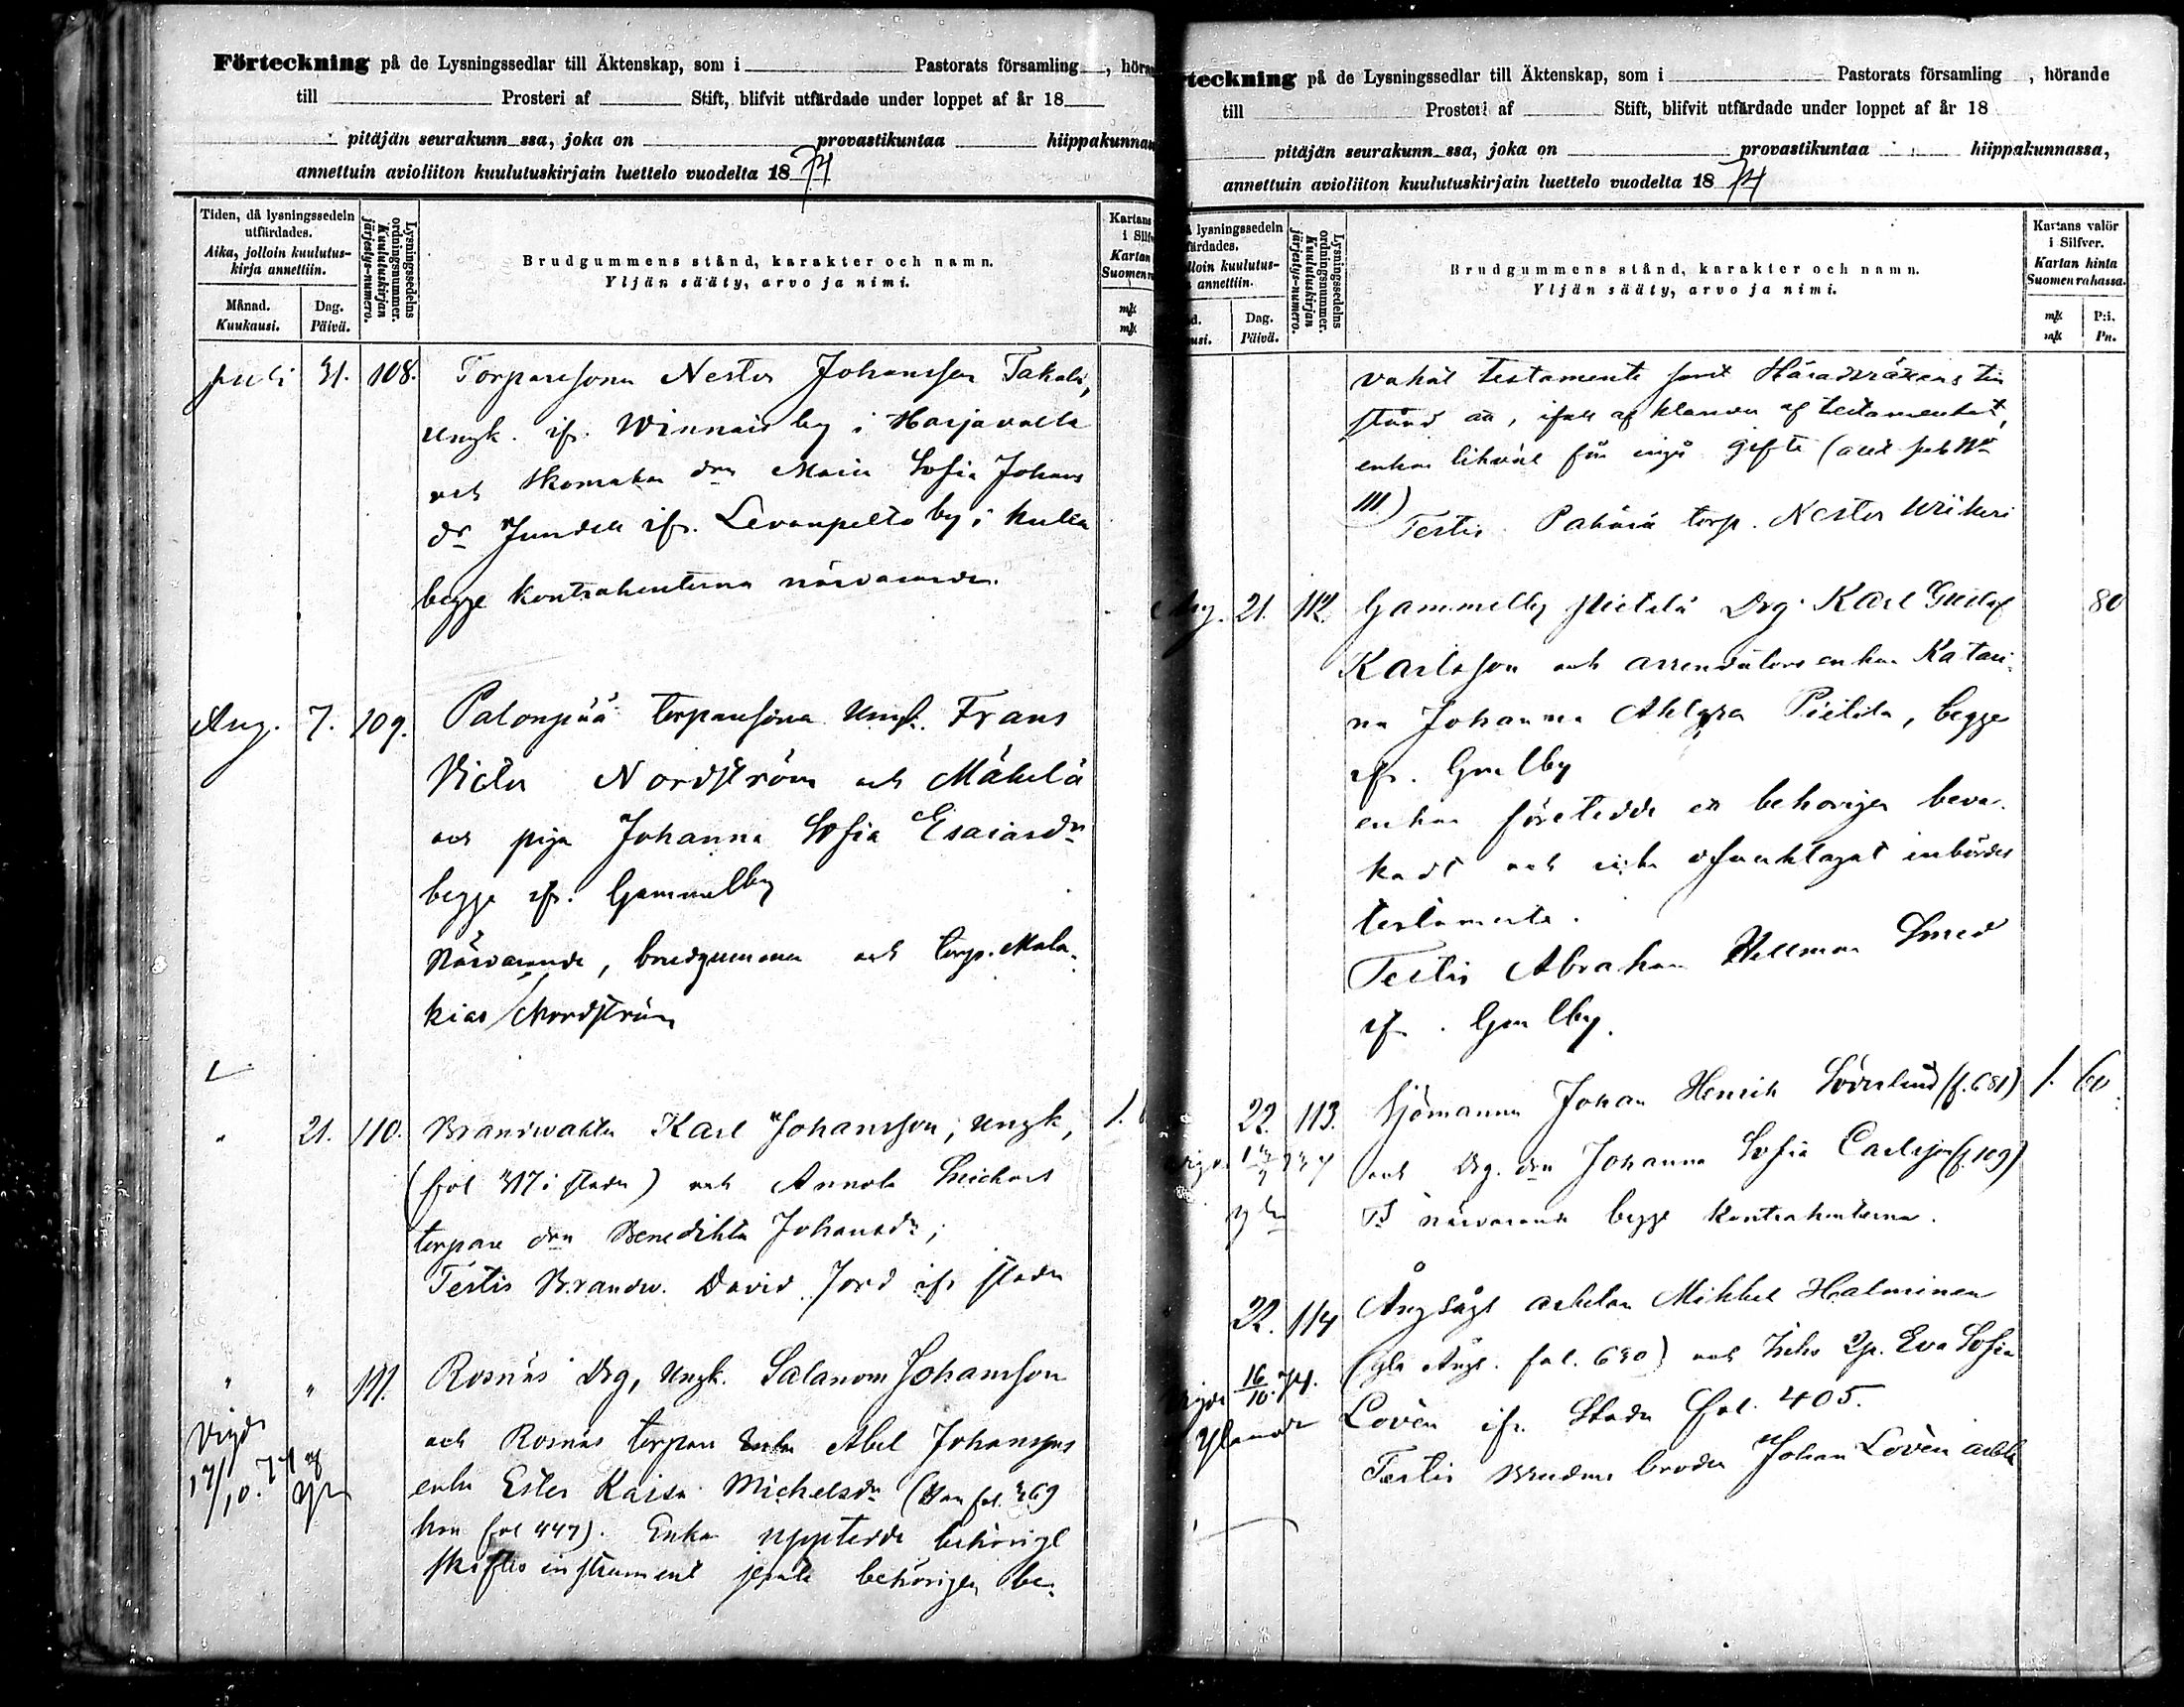 Förteckning på de Lysningssedlar till Äktenskap, som i Pastorats församling , höra
till Prosteri af Stift, blifvit utfärdade under loppet af år 18
pitäjän seurakunn ssa, joka on provastikuntaa hiippakunnas
annettuin avioliiton kuulutuskirjain luettelo vuodelta 1874
Tiden, då lysningssedeln utfärdades.
Aika, jolloin kuulutus-kirja annettiin.
Månad. Kuukausi.
Dag. Päivä.
Lysningssedelns ordningsnummer.
Kuulutuskirjan järjestys-numero.
Brudgummens stånd, karakter och namn.
Yljän sääty, arvo ja nimi.
Kartans
i Silfv
Kartan
Suomen
mk
mk
Juli 31. 108. Torparesonen Nestor Johansson Takala,
Ungk. ifr. Winnais by i Harjavalta
och Skomakar drn Maria Sofia Johans
dr Jundell ifr. Levanpelto by i Kulla
begge kontrahenterna närvarande.
Aug. 7. 109. Palonpää torparesonen Ungk. Frans
Victor Nordström och Mäkelä
och piga Johanna Sofia Esaiasdr
begge ifr. Gammelby
Närvarande, brudgummen och torp. Mala-
kias Nordström
" 21. 110. Brandwakten Karl Johansson, Ungk, 1.
(fol 317 i staden) och Annola
torpare drn Benedikta Johansdr;
Testis Brandw. David Jord ifr staden
" " 111. Rosnäs Drg, Ungk. Salanom Johansson
och Rosnäs torpare Abel Johanssons
enka Ester Kaisa Michelsdr (Han fol. 369
hon fol 447). Enkan uppterde behörigt
skiftes instrument jemte behörigen be-
Vigde
17/10.74 af
rteckning på de Lysningssedlar till Äktenskap, som i Pastorats församling , hörande
till Prosteri af Stift, blifvit utfärdade under loppet af år 18
pitäjän seurakunn ssa, joka on provastikuntaa hiippakunnassa,
annettuin avioliiton kuulutuskirjain luettelo vuodelta 1874
lysningssedeln
färdades.
lloin kuulutus-
annettiin.
d. usi.
Dag. Päivä.
Lysningssedelns ordningsnummer.
Kuulutuskirjan järjestys-numero.
Brudgummens stånd, karakter och namn.
Yljän sääty, arvo ja nimi.
Kartans valör i Silfver.
Kartan hinta Suomen rahassa.
mk P:i.
mk Pn.
vakat testamente samt Häradsrättens till
stånd att, ifall af klander af testamentet,
enkan likväl får ingå gifte (act sub No
111)
Testis Torp. Nestor
Aug. 21. 112. Gammelby Pietilä Drg. Karl Gustaf 80
Karlsson och arrendators enkan Katari-
na Johanna Pietilä, begge
ifr. Gmlby
enkan företedde ett behörigen beva-
kadt och icke öfverklagat inbördes
testamente.
Testis Abraham Hellman Smed
ifr. Gmlby.
22. 113. Sjömannen Johan Henrik Söderlund (f. 681) 1. 60
och Drg. drn Johanna Sofia Carlsson (f. 109)
Ts närvarande begge kontrahenterna.
22. 114 Ångsågs arbetaren Mikkel Halminen
(gla Ångs. fol. 630) och Eva Sofia
Lovèn ifr. Staden fol. 405.
Testis Brudens broder Johan Lovèn
16/10.74.